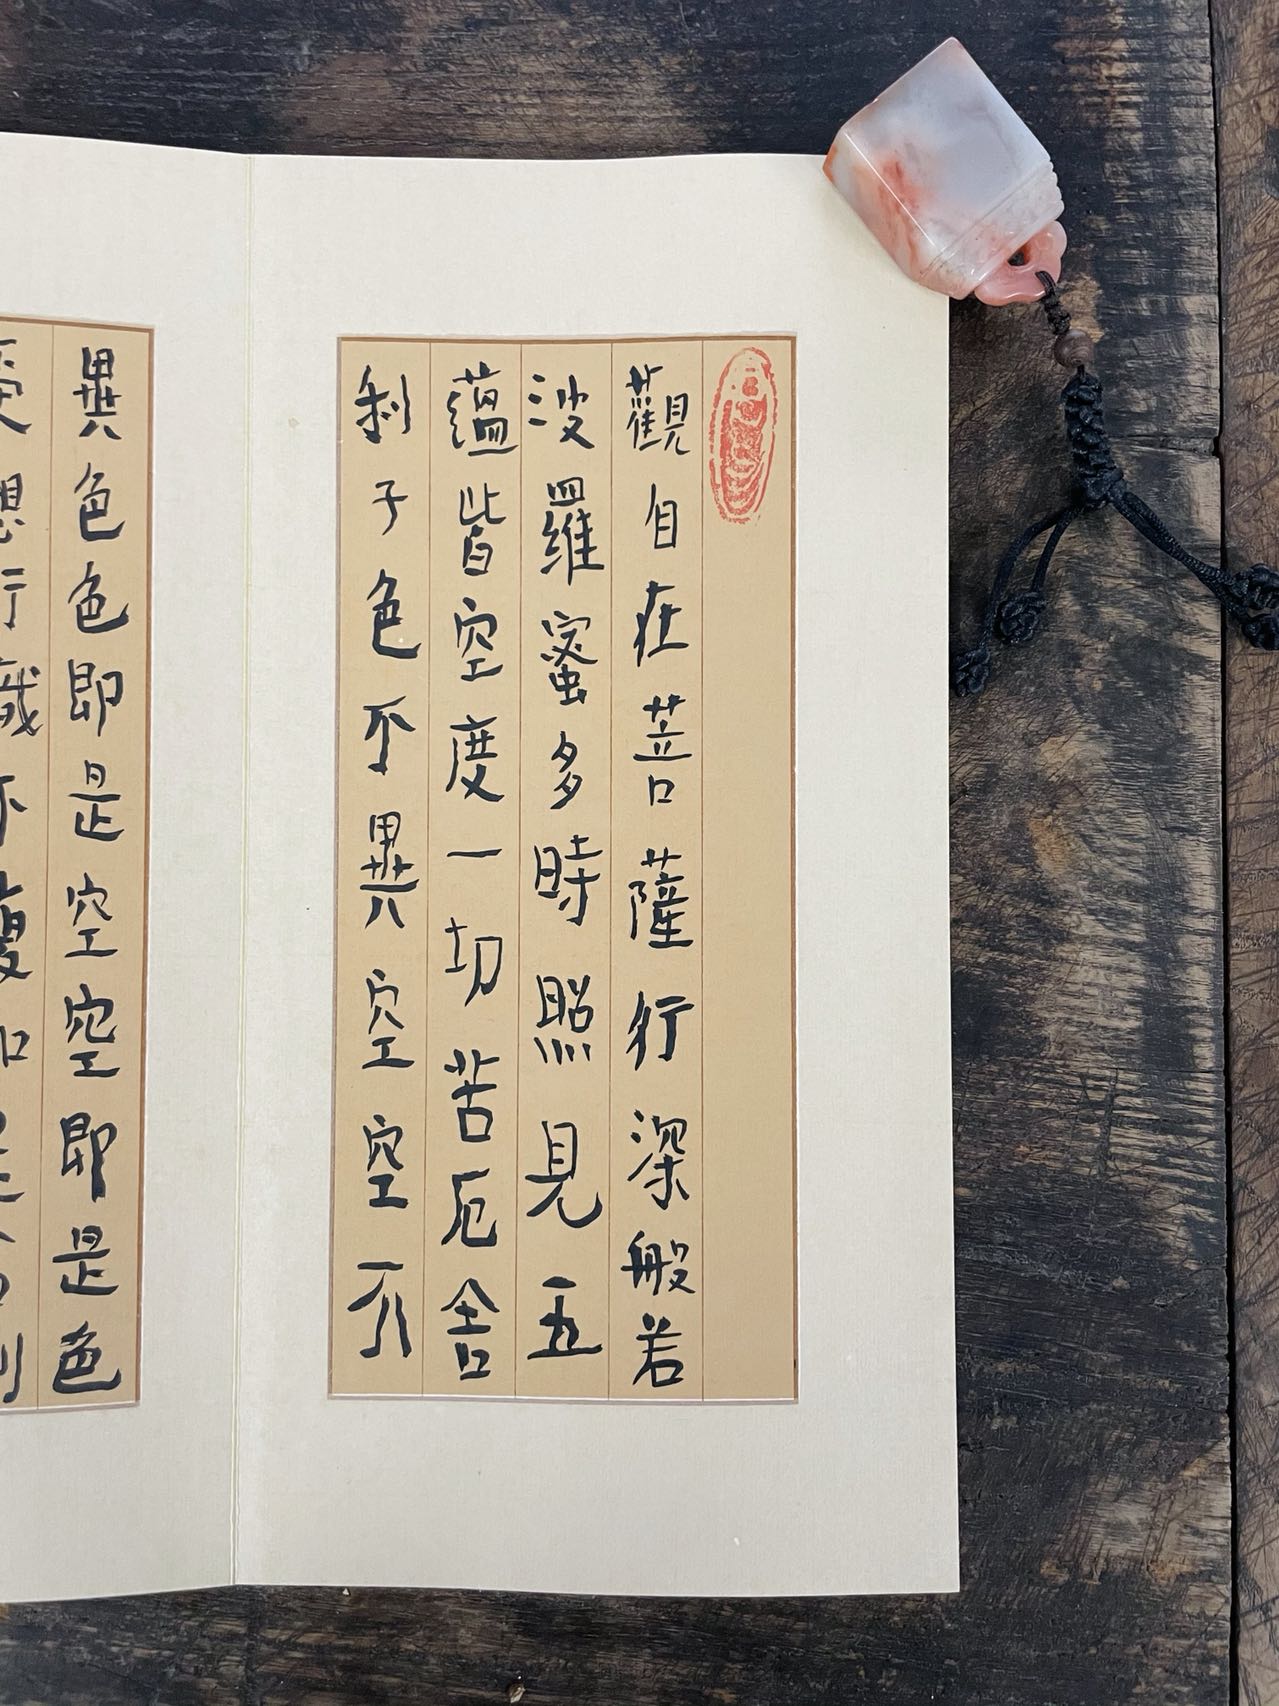 觀自在菩薩行深般若
波羅蜜多時照見五
蘊皆空度一切苦厄舍
利子色不異空空不
異色色即是空空即是色
受想行識亦復如是舍利